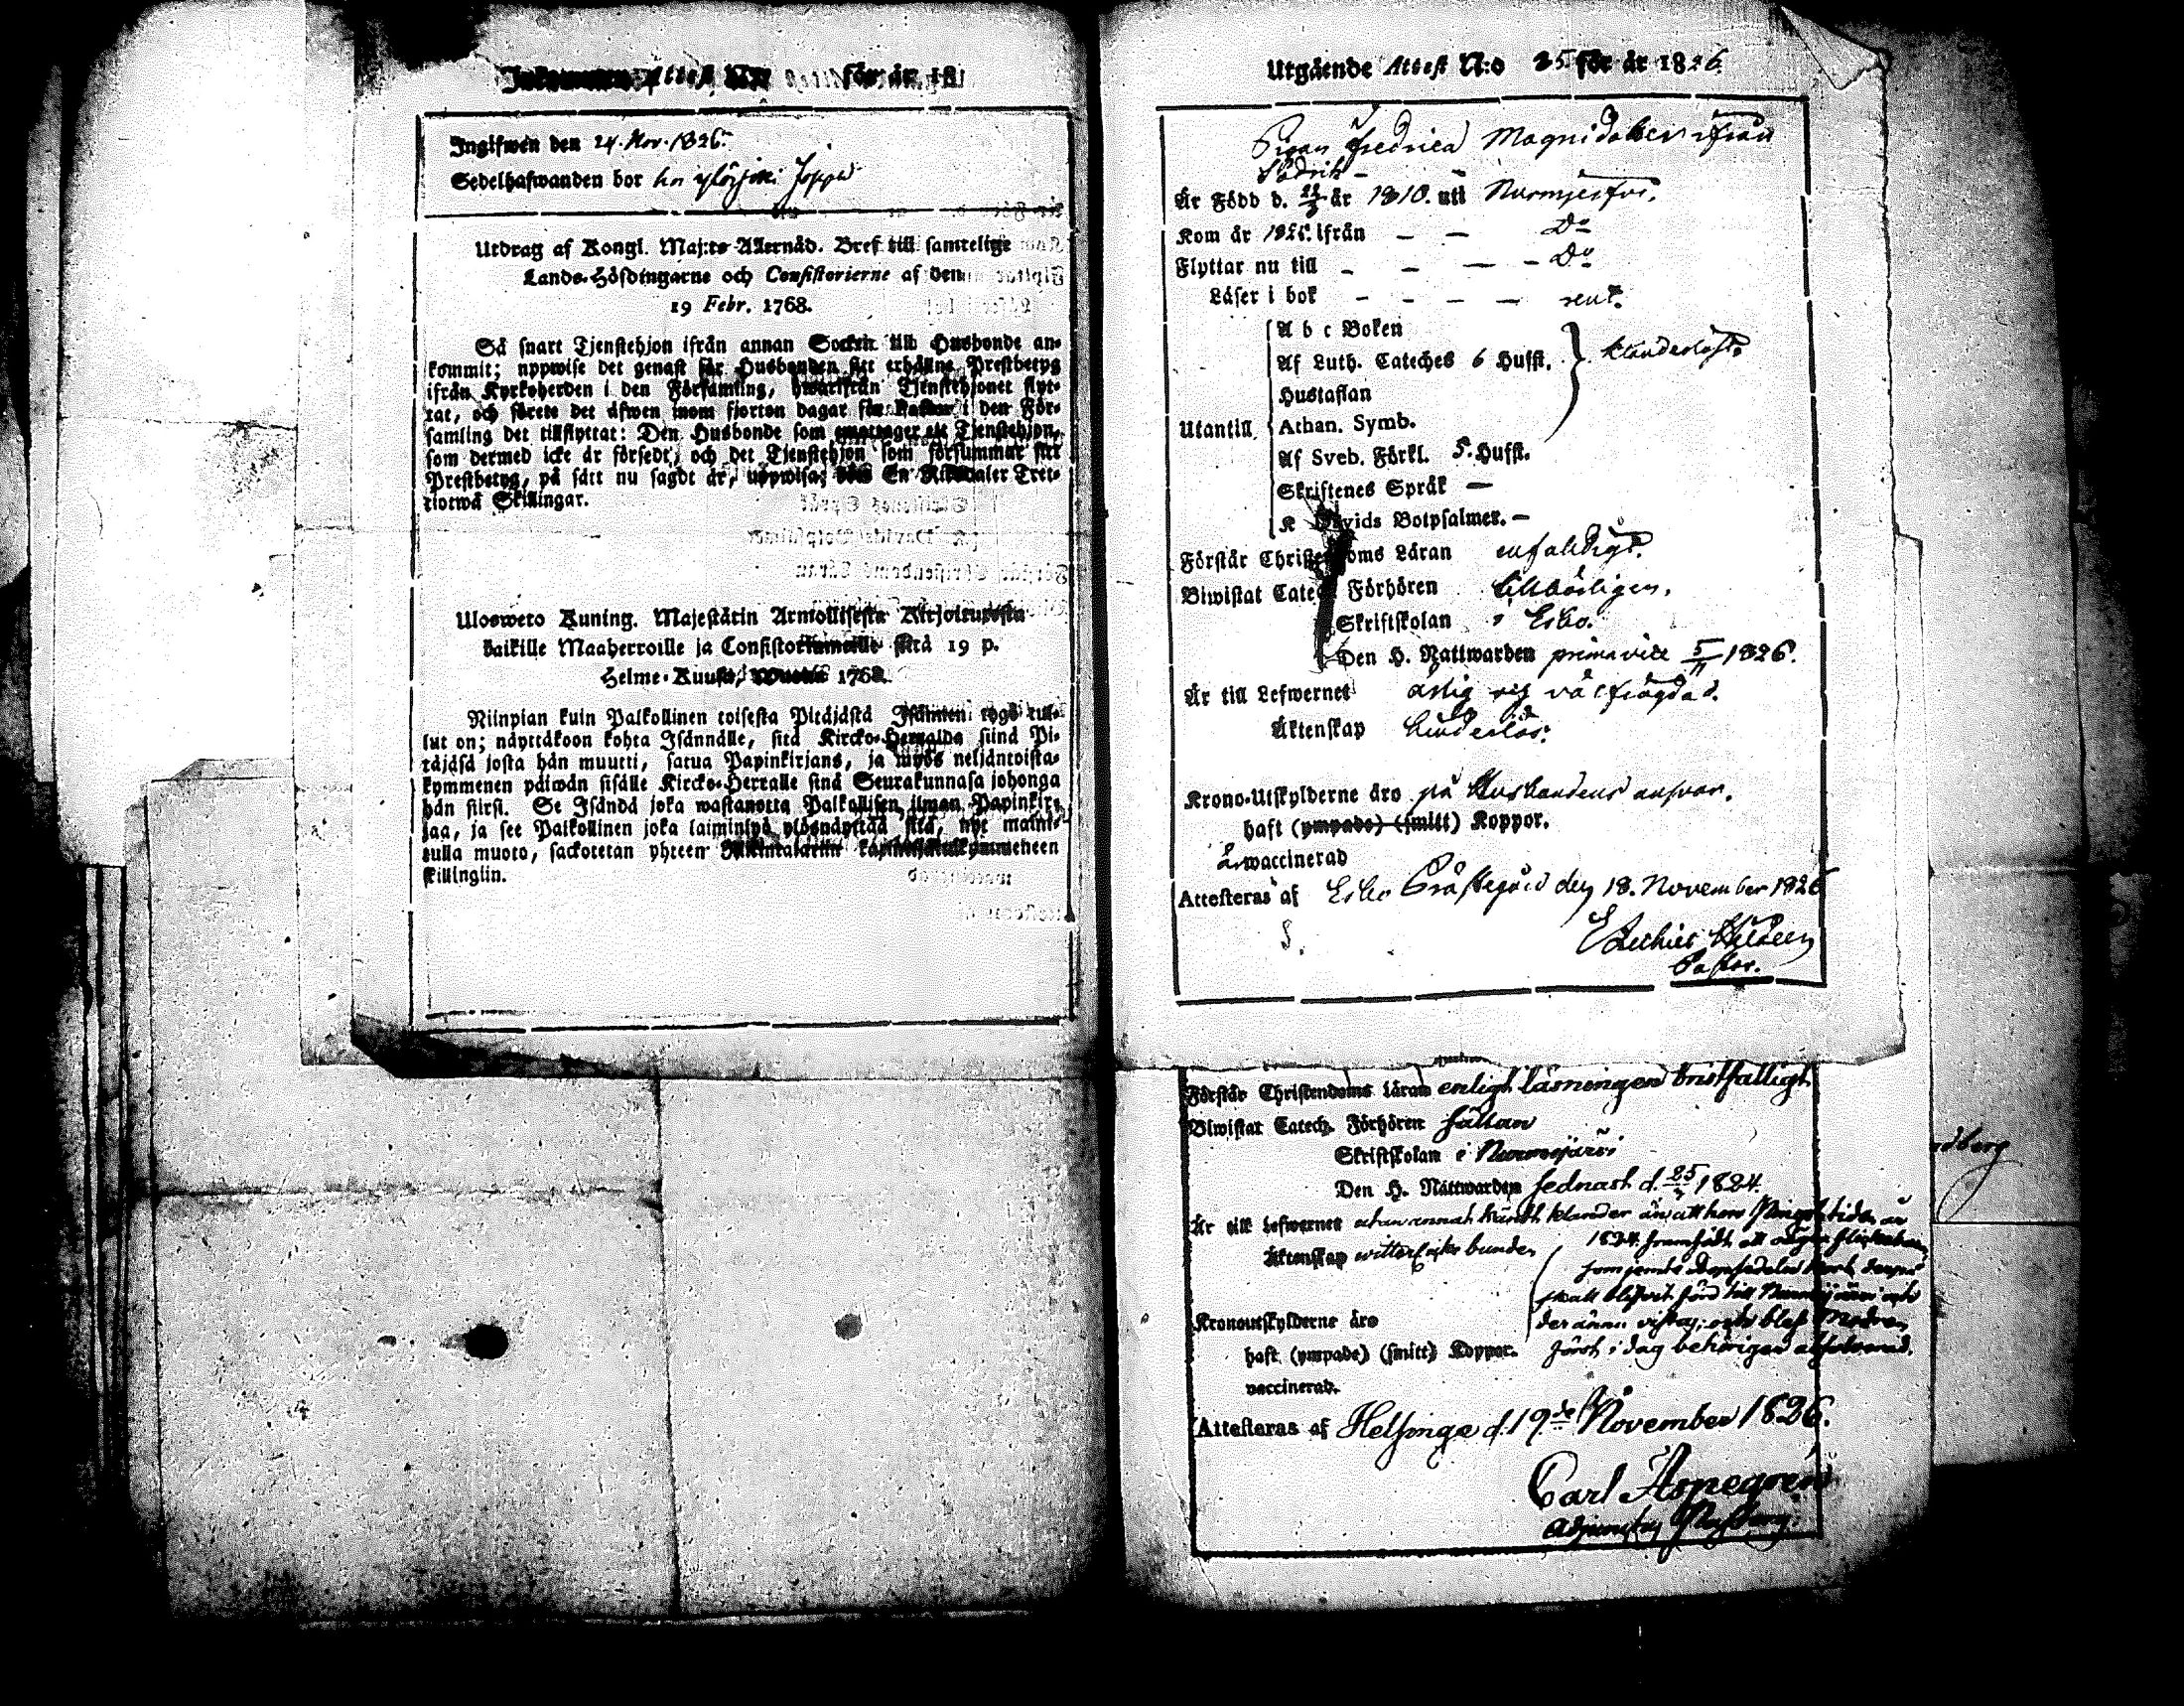 för år 18
Ingifwen den 24. Nov. 1826.
Sedelhafwanden bor hos
Utdrag af Kongl. Maj:ts Allernåd. Bref till samtelige
Lands-Höfdingarne och Consistorierne af den
19 Febr. 1768.
Så snart Tjenstehjon ifrån annan Sockn till Husbonde an-
kommit; uppwise det genast för Husbonden sitt erhållne Prestbetyg
ifrån Kyrkoherden i den Församling, hwarifrån Tjenstehjonet flyt-
tat, och förete det äfwen inom fjorton dagar för Pastor i den För-
samling det tillflyttat: Den Husbonde som emottager ett Tjenstehjon,
som dermed icke är försedt, och det Tjenstehjon som försummar sitt
Prestbetyg, på sätt nu sagdt är, uppwisa, böte En Riksdaler Tret-
tiotwå Skillingar.
Ulosweto Kuning. Majestätin Armollisesta Kirjoituxesta
kaikille Maaherroille ja Consistoriumeille siitä 19 p.
Helme-Kuusa, Wuonna 1768.
Niinpian kuin Palkollinen toisesta Pitäjästä Isännän tygö tul-
lut on; näyttäkoon kohta Isännälle, sitä Kircko-Herralda siinä Pi-
täjäsä josta hän muutti, saatua Papinkirjans, ja myös neljäntoista-
kymmenen päiwän sisälle Kircko-Herralle siinä Seurakunnasa johonga
hän siirsi. Se Isändä joka wastanotta Palkollisen ilman Papinkir-
jaa, ja see Palkollinen joka laiminlyö ylösnäyttää sitä, nyt maini-
tulla muoto, sackotetan yhteen Riikintaleriin
skillingiin.
Utgående Attest N:o 25 för år 1826.
Pigan Fredrica Magnidotter ifrån
Är Född d. år 1810. uti Nurmjerfvi.
Kom år 1825. ifrån — — Do
Flyttar nu till — — — — Do
Läser i bok — — — — rent.
A b c Boken
Af Luth. Cateches 6 Hufst. klanderlöst.
Hustaflan
Utantill Athan. Symb.
Af Sveb. Förkl. 5. Hufst.
Skriftenes Språk —
K Davids Botpsalmer. —
Förstår Christendoms Läran enfaldigt.
Biwistat Catech. Förhören tillbörligen.
Skriftskolan i Esbo.
Den H. Nattwarden prima vice 5/11 1826.
Är till Lefwernet ärlig och välfrägdad.
Äktenskap hinderlös.
Krono-Utskylderne äro på Husbondens ansvar.
haft (ympade) (smitt) Koppor.
är waccinerad
Attesteras af Esbo Prästegård den 18. November 1826
Pastor.
Förstår Christendoms Läran enligt läsningen bristfälligt
Biwistat Catech. Förhören sällan
Skriftskolan i Nurmijärvi
Den H. Nattwarden sednast d. 25 1824.
Är till Lefwernet utan annat känt klander än att hon Pingst tiden år
Äktenskap witterligt obunden 1824. framfödt ett oägta flickebarn
skall blifvit förd till Nurmijärvi och
Kronoutskylderne äro der ännu vistas, och blef Modren
haft (ympade) (smitt) Koppor. först i dag behörigen absolverad.
vaccinerad.
Attesteras af Helsinge d. 19de November 1826.
Carl Aspegren
dberg